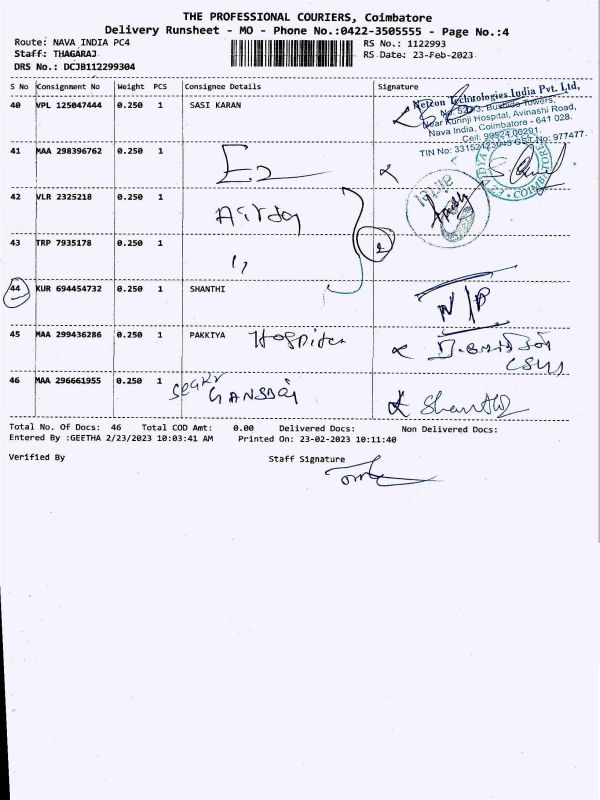 THE PROFESSIONAL COURIERS, Coimbatore
Delivery Runsheet - MO - Phone No.:0422-3505555 - Page No.:4
Route: NAVA INDIA PC4 RS No.: 1122993
Staff: THAGARAJ RS Date: 23-Feb-2023
DRS No.: DCJB112299304
S No Consignment No Weight PCS Consignee Details Signature
40 VPL 125047444 0.250 1 SASI KARAN
Netcon Technologies India Pvt. Ltd,
Bushido Towers,
Near Kurinji Hospital, Avinashi Road,
Nava India, Coimbatore - 641 028.
Cell: 99524 00201.
41 MAA 298396762 0.250 1
42 VLR 2325218 0.250 1
43 TRP 7935178 0.250 1 "
2
44 KUR 694454732 0.250 1 SHANTHI N/P
45 MAA 299436286 0.250 1 PAKKIYA Hospital
46 MAA 296661955 0.250 1
Total No. Of Docs: 46 Total COD Amt: 0.00 Delivered Docs: Non Delivered Docs:
Entered By :GEETHA 2/23/2023 10:03:41 AM Printed On: 23-02-2023 10:11:40
Verified By Staff Signature